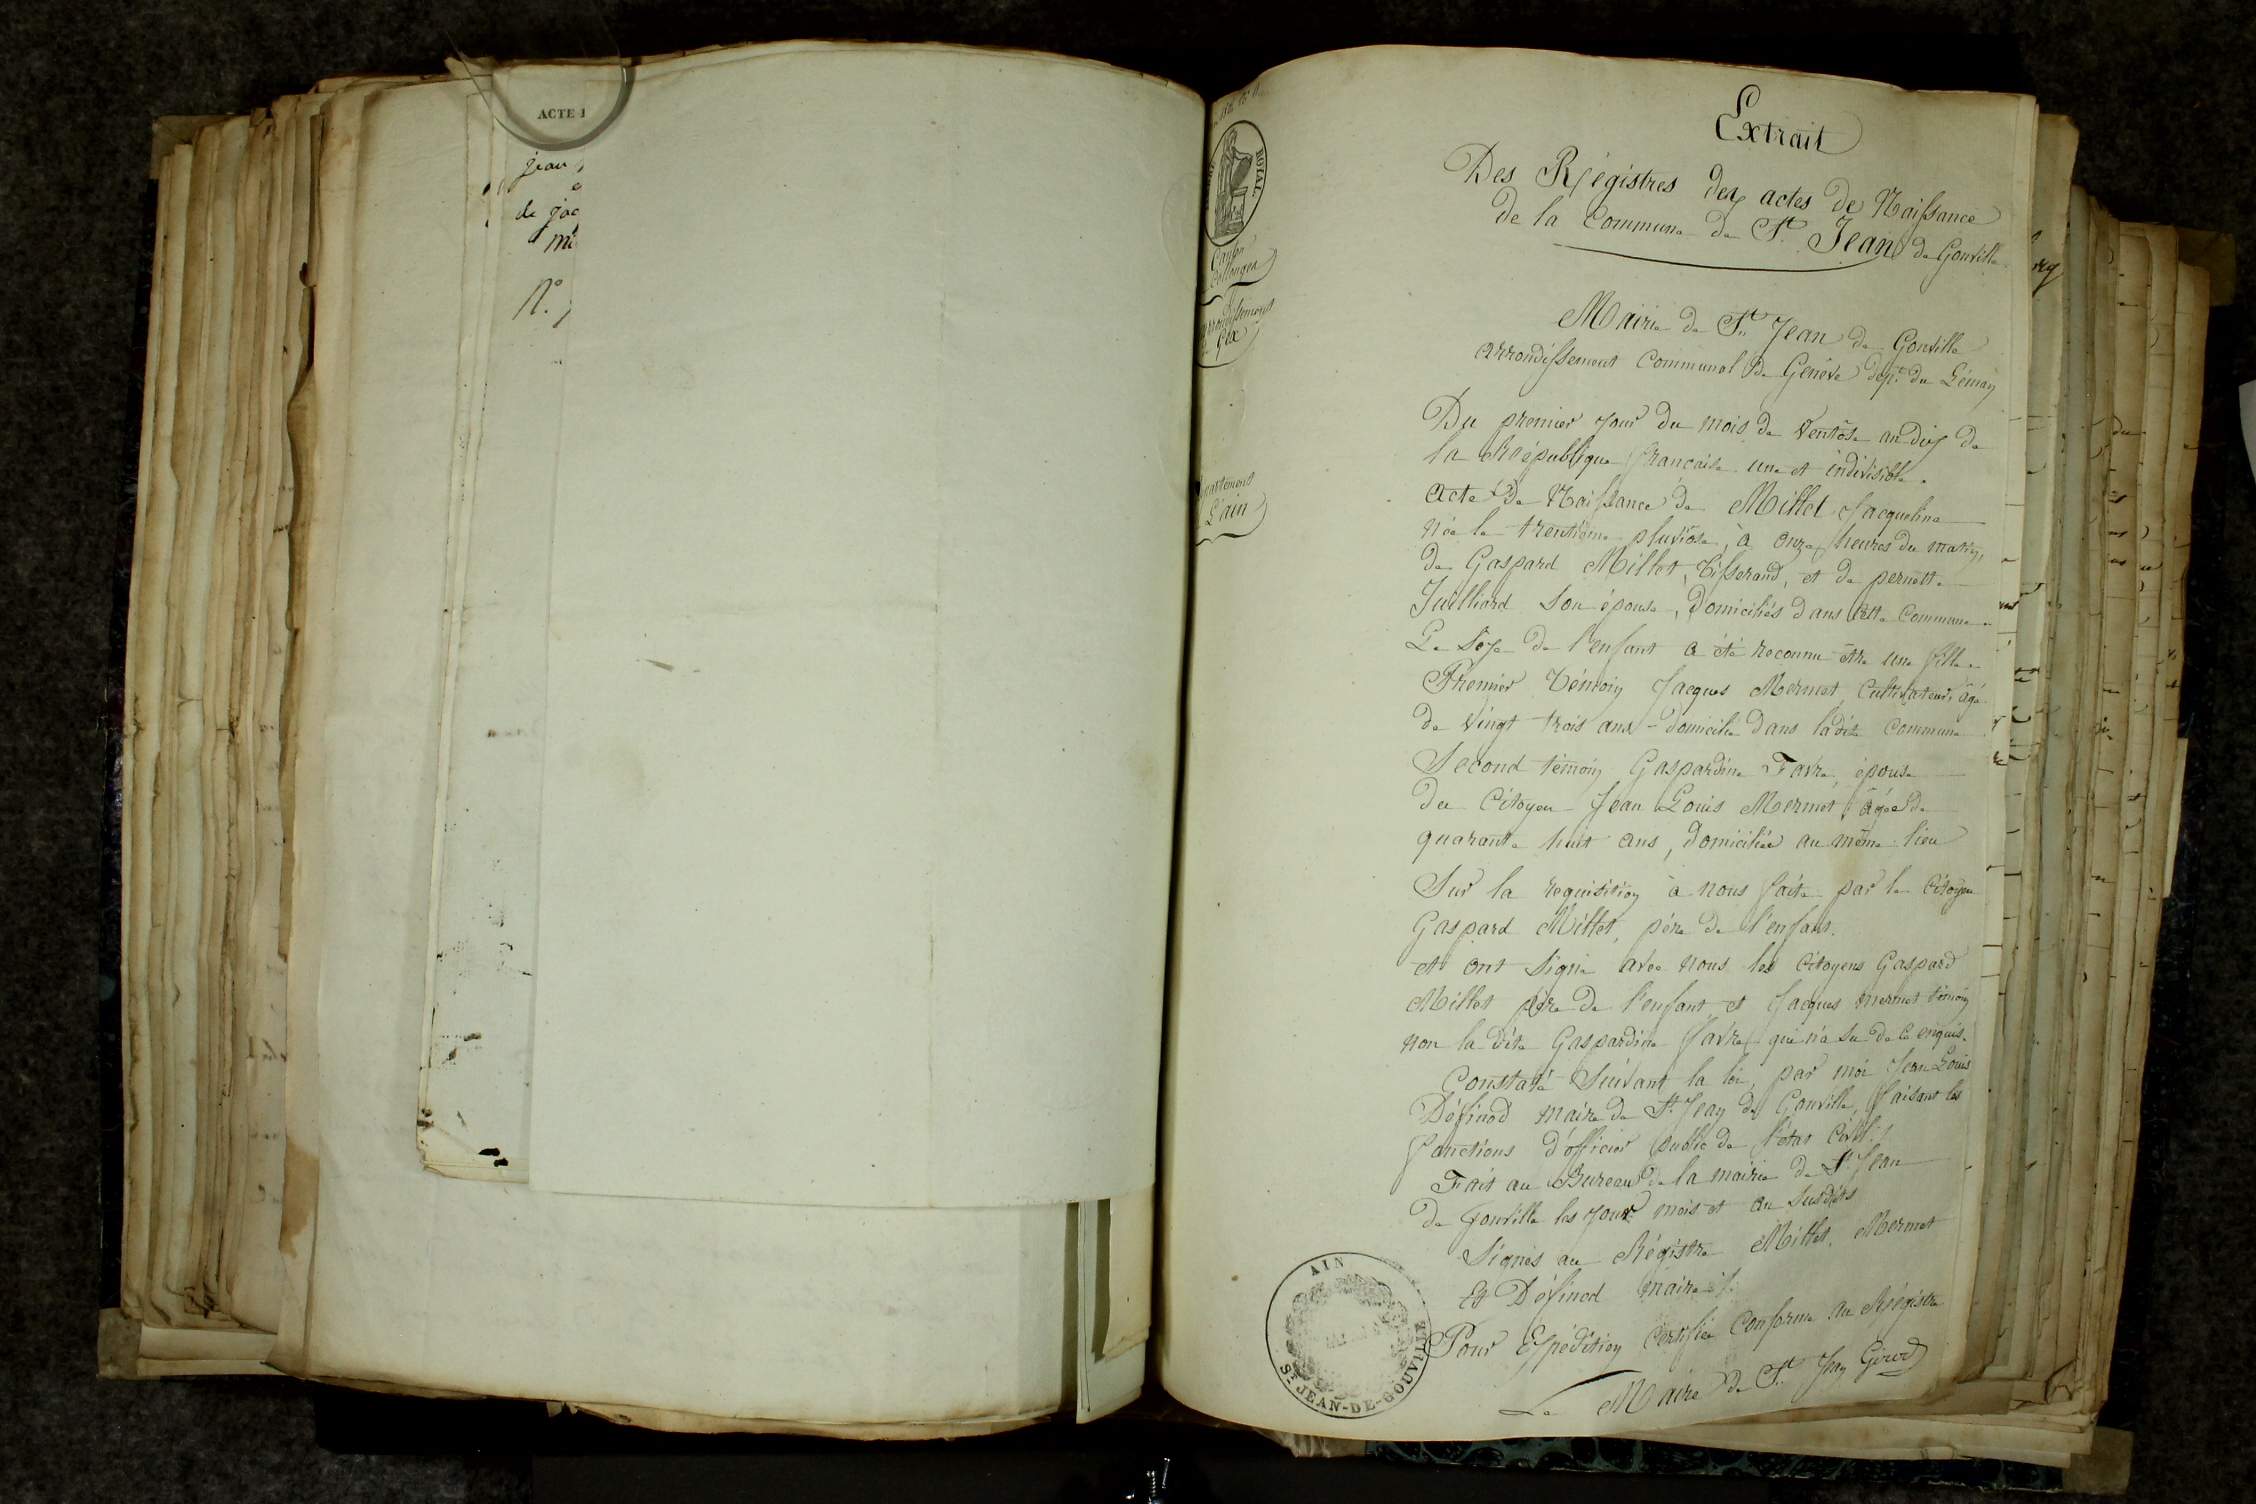 ACTE
jean
de jac
N.°
ROYAL
Canton
Collonges
arrondissement
Gex
L'ain
Extrait
Des Régistres des actes de Naissance
de la Commune de St Jean de Gonville
Mairie de St Jean de Gonville
arrondissement Communal de Genève dept. du Léman
Du premier jour du mois de Ventôse an dix de
la République française une et indivisible.
acte de Naissance de Millet Jacqueline
née le trentième pluviôse, à onze heures du matin,
de Gaspard Millet, Tisserand, et de pernette
Juilliard son épouse, domiciliés dans cette Commune.
Le sexe de l'enfant a été reconnu être une fille.
Premier témoin Jacques Mermet, Cultivateur, âgé
de vingt trois ans - domicilié dans ladite Commune
Second témoin Gaspardine Favre, épouse
du Citoyen Jean Louis Mermet, âgée de
quarante huit ans, domiciliée au même lieu
Sur la requisition à nous faite par le Citoyen
Gaspard Millet, père de l'enfant.
et ont signé avec nous les Citoyens Gaspard
Millet père de l'enfant et Jacques mermet témoin
non la dite Gaspardine favre qui n'a su de ce enquise.
Constaté suivant la loi, par moi Jean Louis
Définod maire de St Jean de Gonville, faisant les
fonctions d'officier public de l'état Civil.
Fait au Bureau de la mairie de St Jean
de Gonville les jour mois et an susdits
Signés au Régistre Millet, Mermet
Et Définod maire
Pour Expédition Certifiée Conforme au Régistre
Le Maire de St Jean Girod
AIN
ST JEAN-DE-GOUVILLE